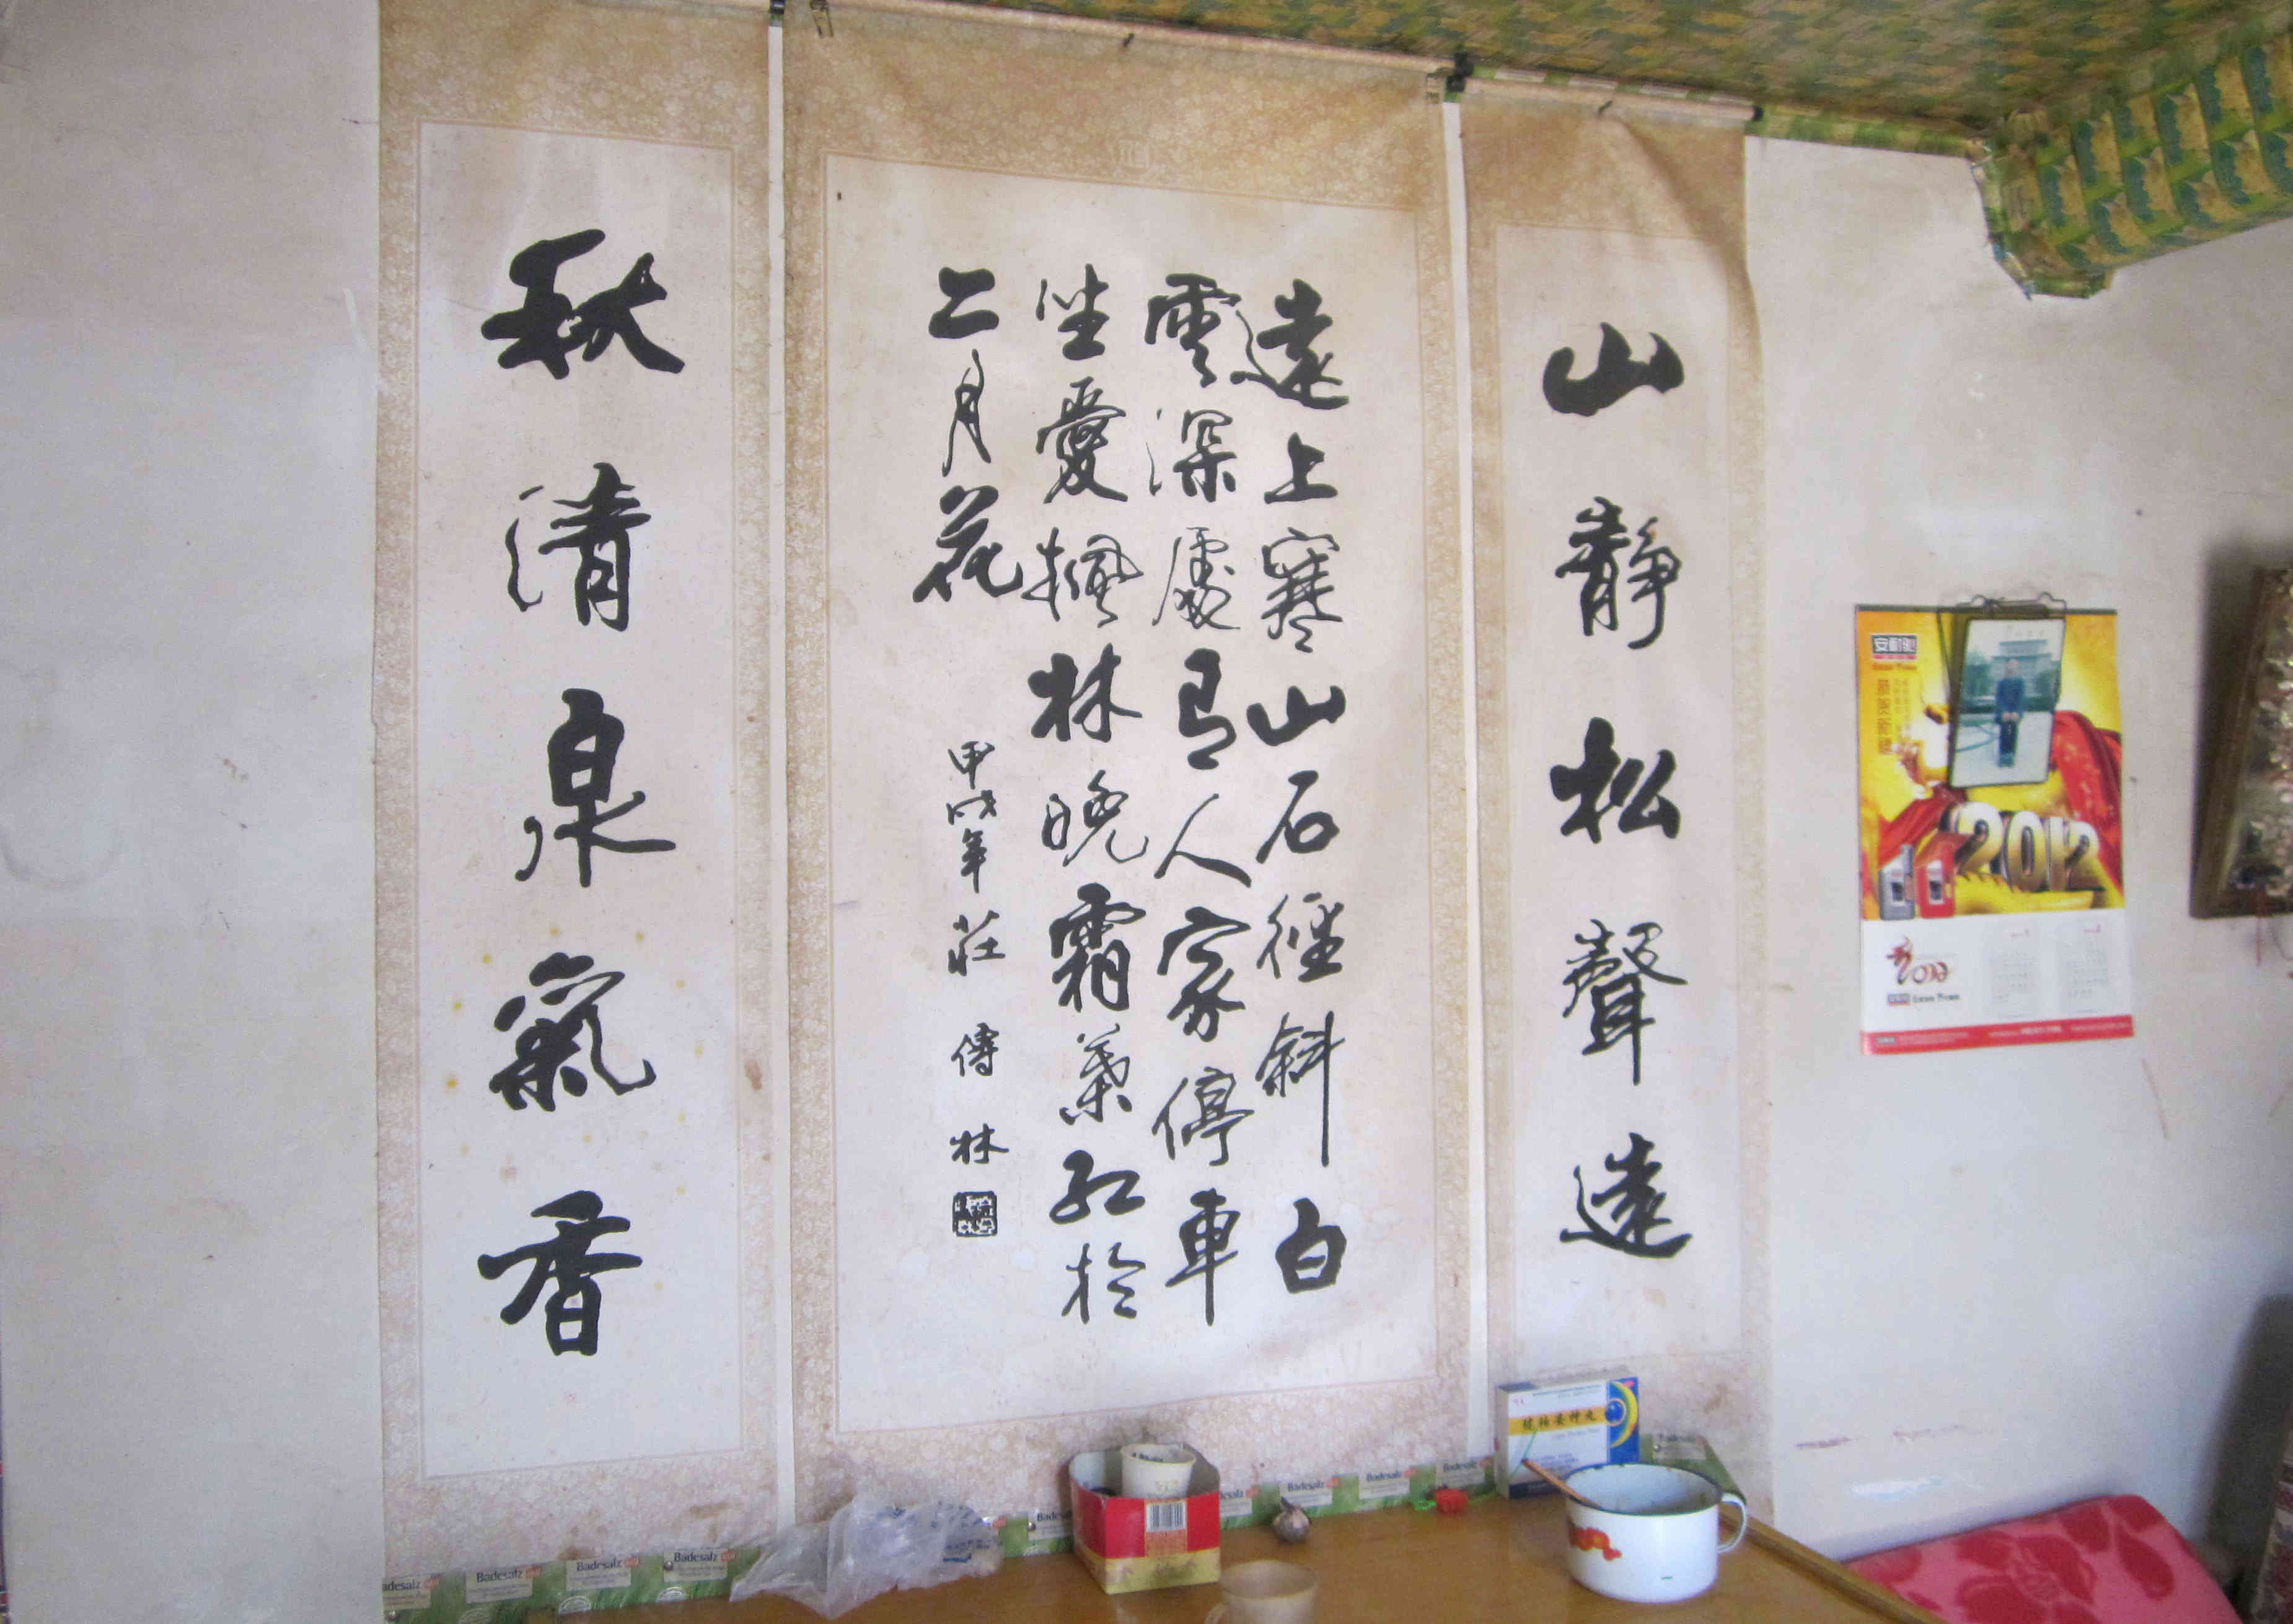 山靜松聲遠
遠上寒山石徑斜白
雲深處有人家停車
坐愛楓林晚霜葉紅於
二月花
甲戌年 莊 傳 林
秋清泉氣香
2012
2012
Badesalz
Badesalz
Badesalz
Badesalz
Badesalz
Badesalz